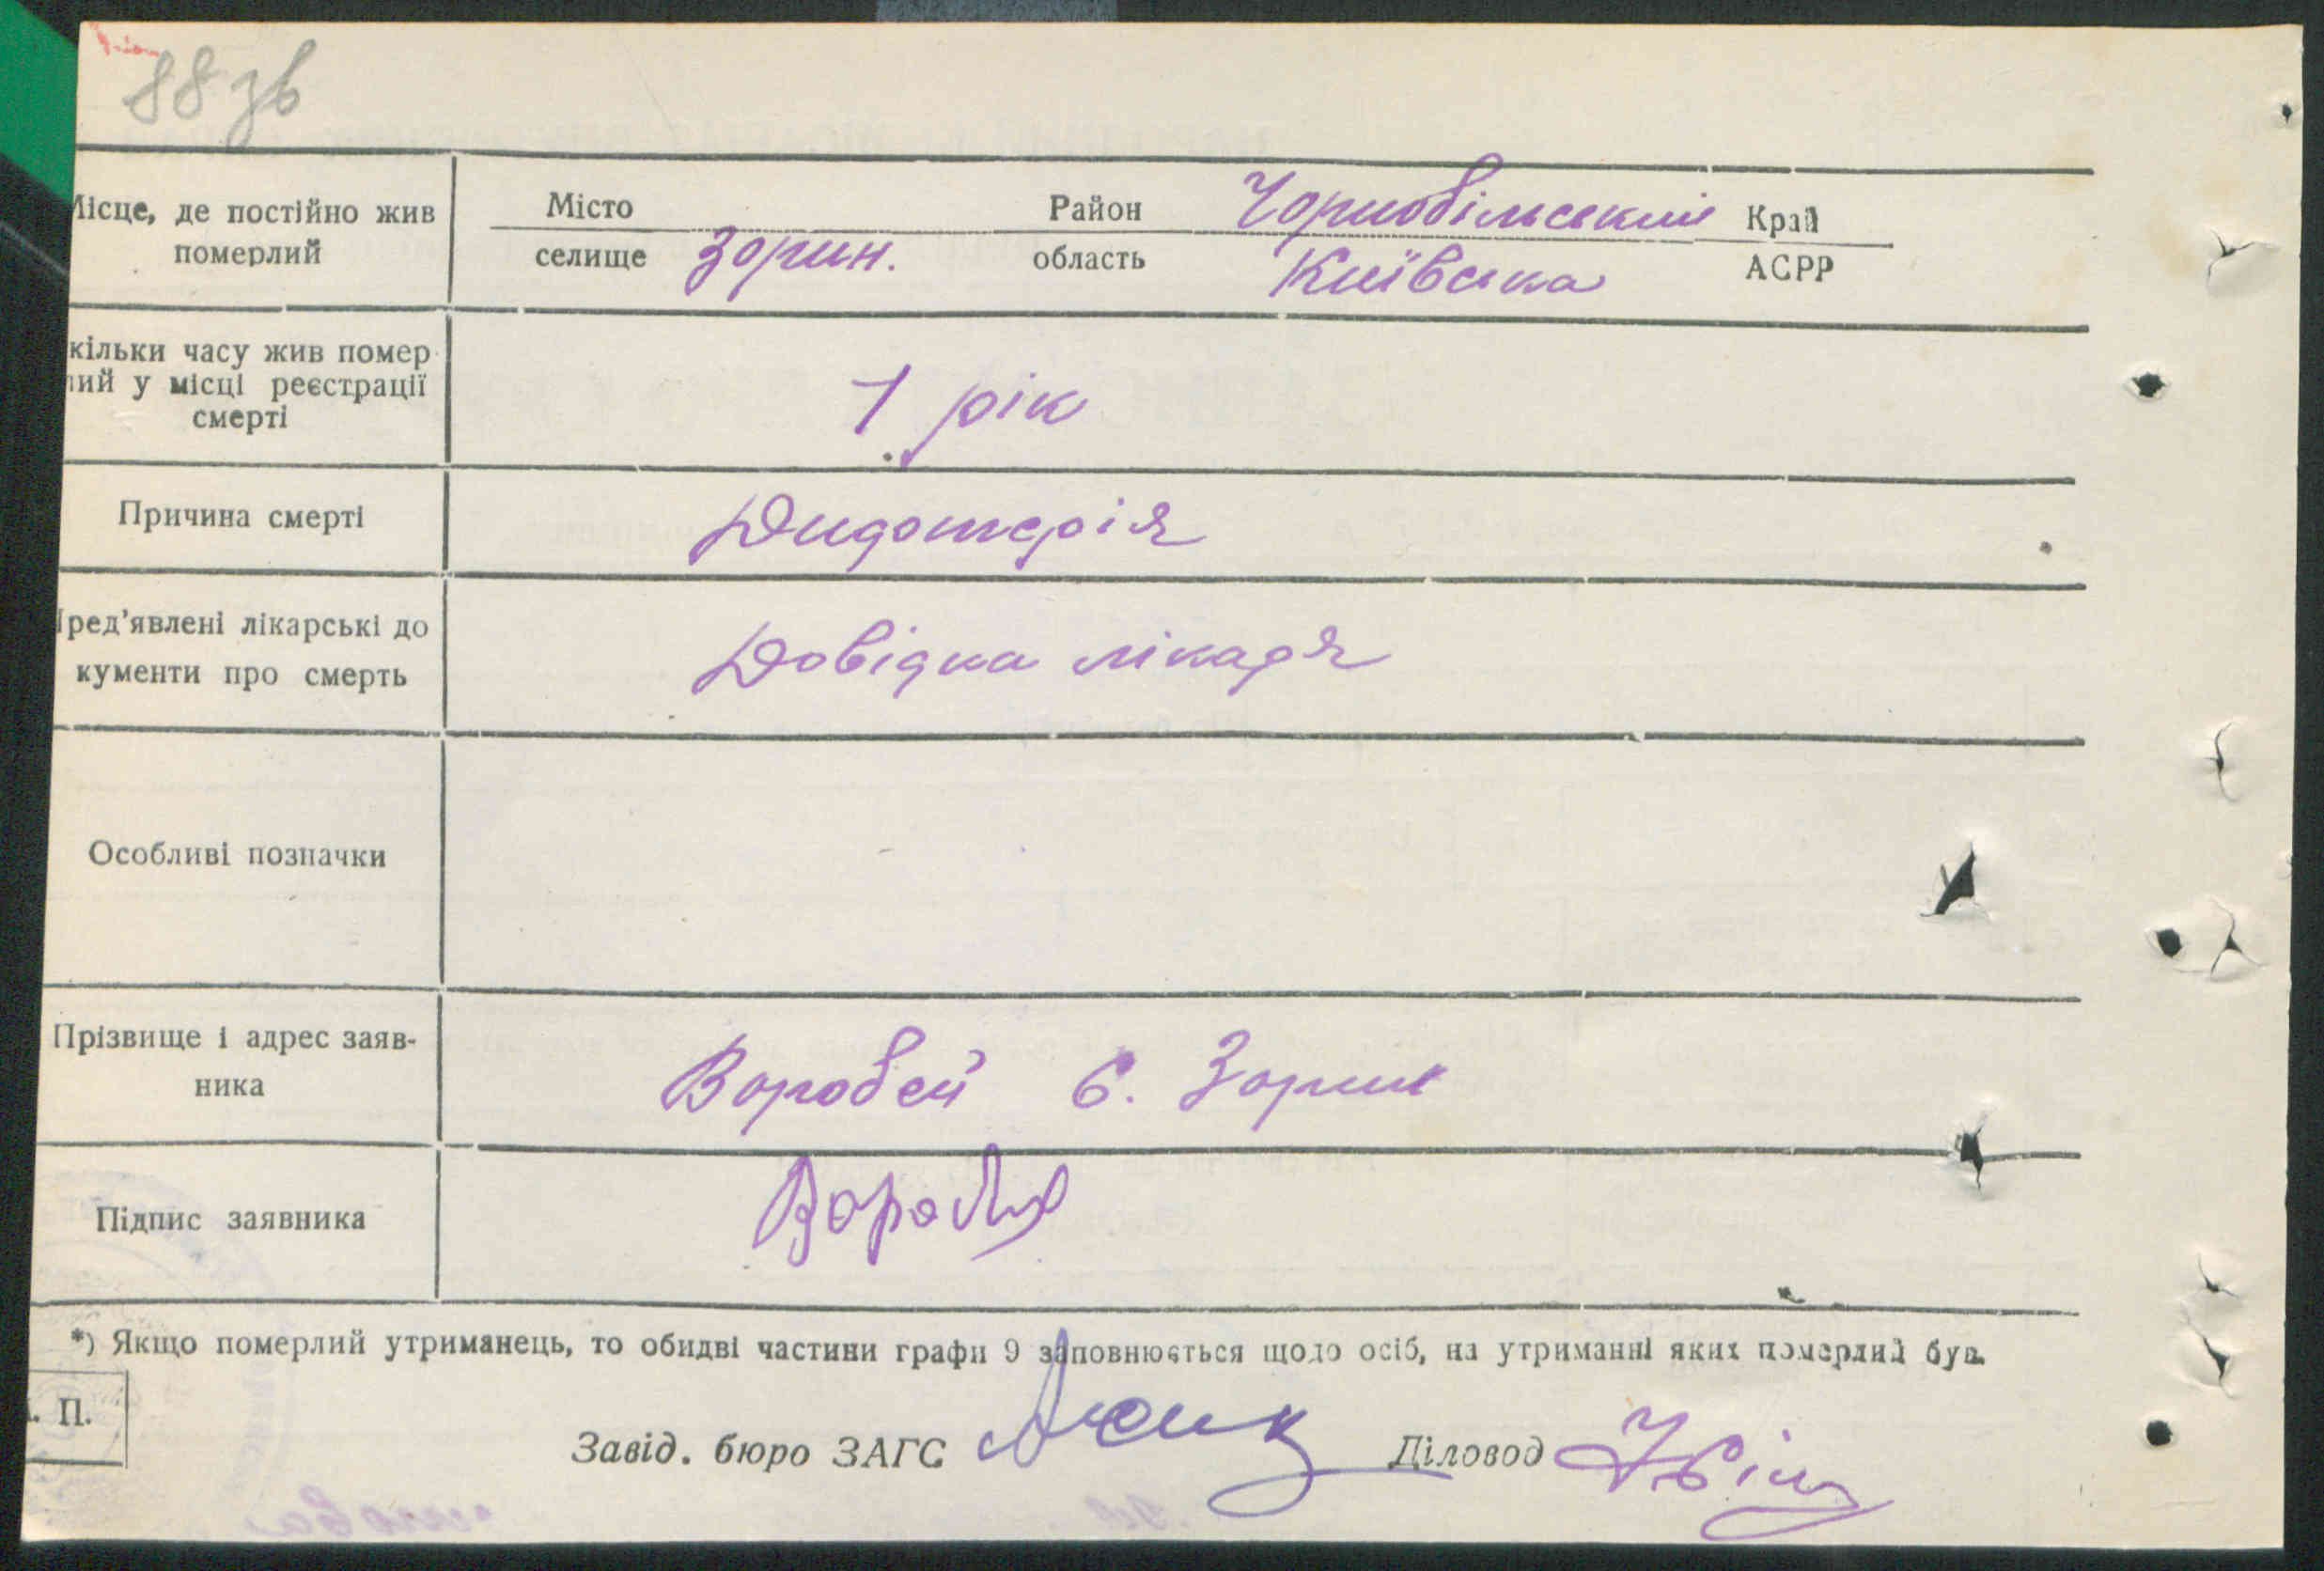 88 зв
Місце, де постійно жив померлий
Місто Район Чорнобільський Край
селище Зорин. область Київська АСРР
кільки часу жив помер
лий у місці реєстрації
смерті
1 рік
Причина смерті Дидотерія
Пред'явлені лікарські до
кументи про смерть
Довідка лікаря
Особливі позначки
Прізвище і адрес заяв-
ника
Воробей с. Зорин
Підпис заявника
*) Якщо померлий утриманець, то обидві частини графи 9 заповнюється щодо осіб, на утриманні яких померлий був.
. П.
Завід. бюро ЗАГС Діловод